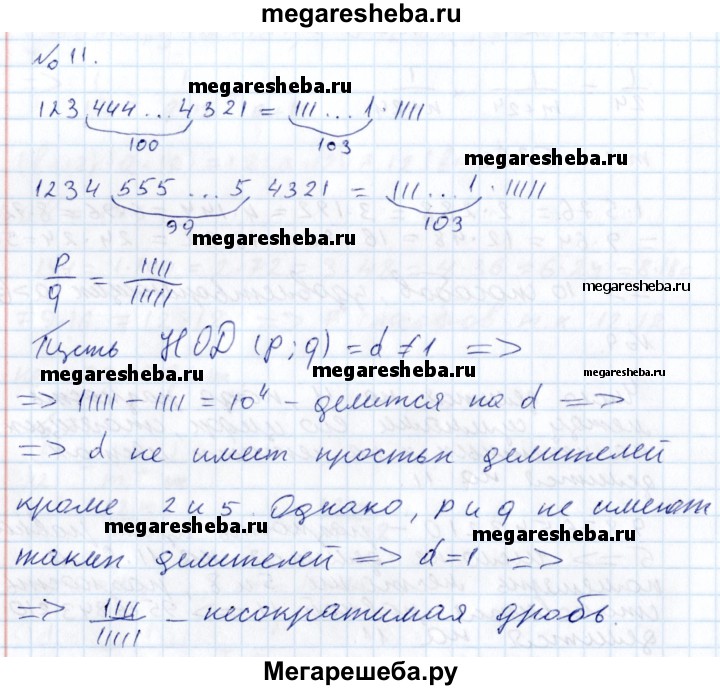 megaresheba.ru
№ 11.
megaresheba.ru
123 444 ... 4 321 = 111 ... 1 · 1111
100 103
megaresheba.ru
1234 555 ... 5 4321 = 111 ... 1 · 11111
99 103
megaresheba.ru
p/q = 1111/11111
megaresheba.ru
Пусть НОД (p; q) = d ≠ 1 =>
megaresheba.ru megaresheba.ru
=> 11111 - 1111 = 10⁴ - делится на d =>
=> d не имеет простых делителей
кроме 2 и 5. Однако, p и q не имеют
megaresheba.ru megaresheba.ru
таких делителей => d = 1 =>
=> 1111/11111 – несократимая дробь.
Мегарешеба.ру